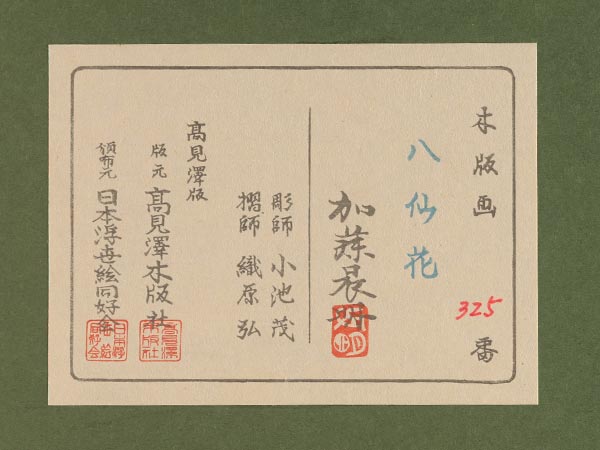 木版画 325 番
八仙花
加藤晨明
彫師 小池茂
摺師 織原弘
高見澤版
版元 高見澤木版社
頒布元 日本浮世絵同好会